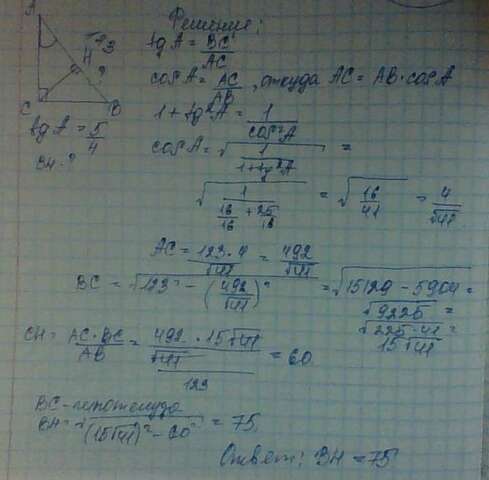 Решение:
A
123
H
?
C
B
tg A = 5/4
BH - ?
tg A = BC/AC
cos A = AC/AB, откуда AC = AB · cos A
1 + tg²A = 1/cos²A
cos A = √(1/(1+tg²A)) =
√(1/(16/16 + 25/16)) = √(16/41) = 4/√41
AC = 123·4/√41 = 492/√41
BC = √(123² - (492/√41)²) = √(15129 - 5904) =
√9225 =
√(225·41) =
15√41
CH = AC·BC/AB = (492/√41 · 15√41)/123 = 60
BC - гипотенуза
BH = √((15√41)² - 60²) = 75
Ответ: BH = 75